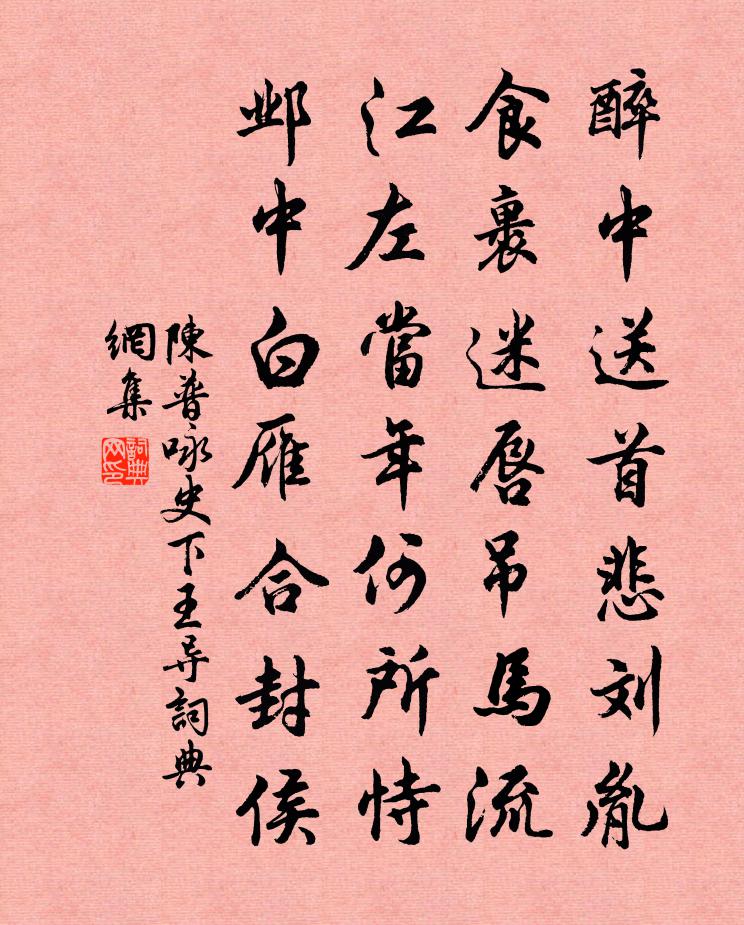 醉中送首悲刘胤
食裹迷唇吊馬流
江左當年何所恃
邺中白雁合封侯
陳普咏史下王导詞典
網集
詞典
网印